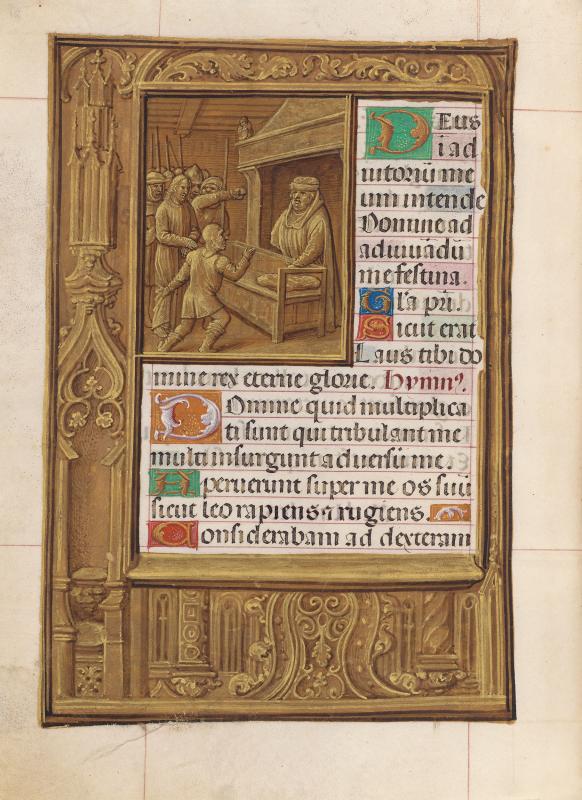 DEus
i ad
iutoriū me
um intende
Domine ad
adiuuādū
me festina.
Gl'a pr̄i.
Sicut erat
Laus tibi do
mine rex eterne glorie. Hymnꝰ.
Domine quid multiplica
ti sunt qui tribulant me
multi insurgunt aduersū me.
Aperuerunt super me os suū
sicut leo rapiens ⁊ rugiens
Considerabam ad dexteram